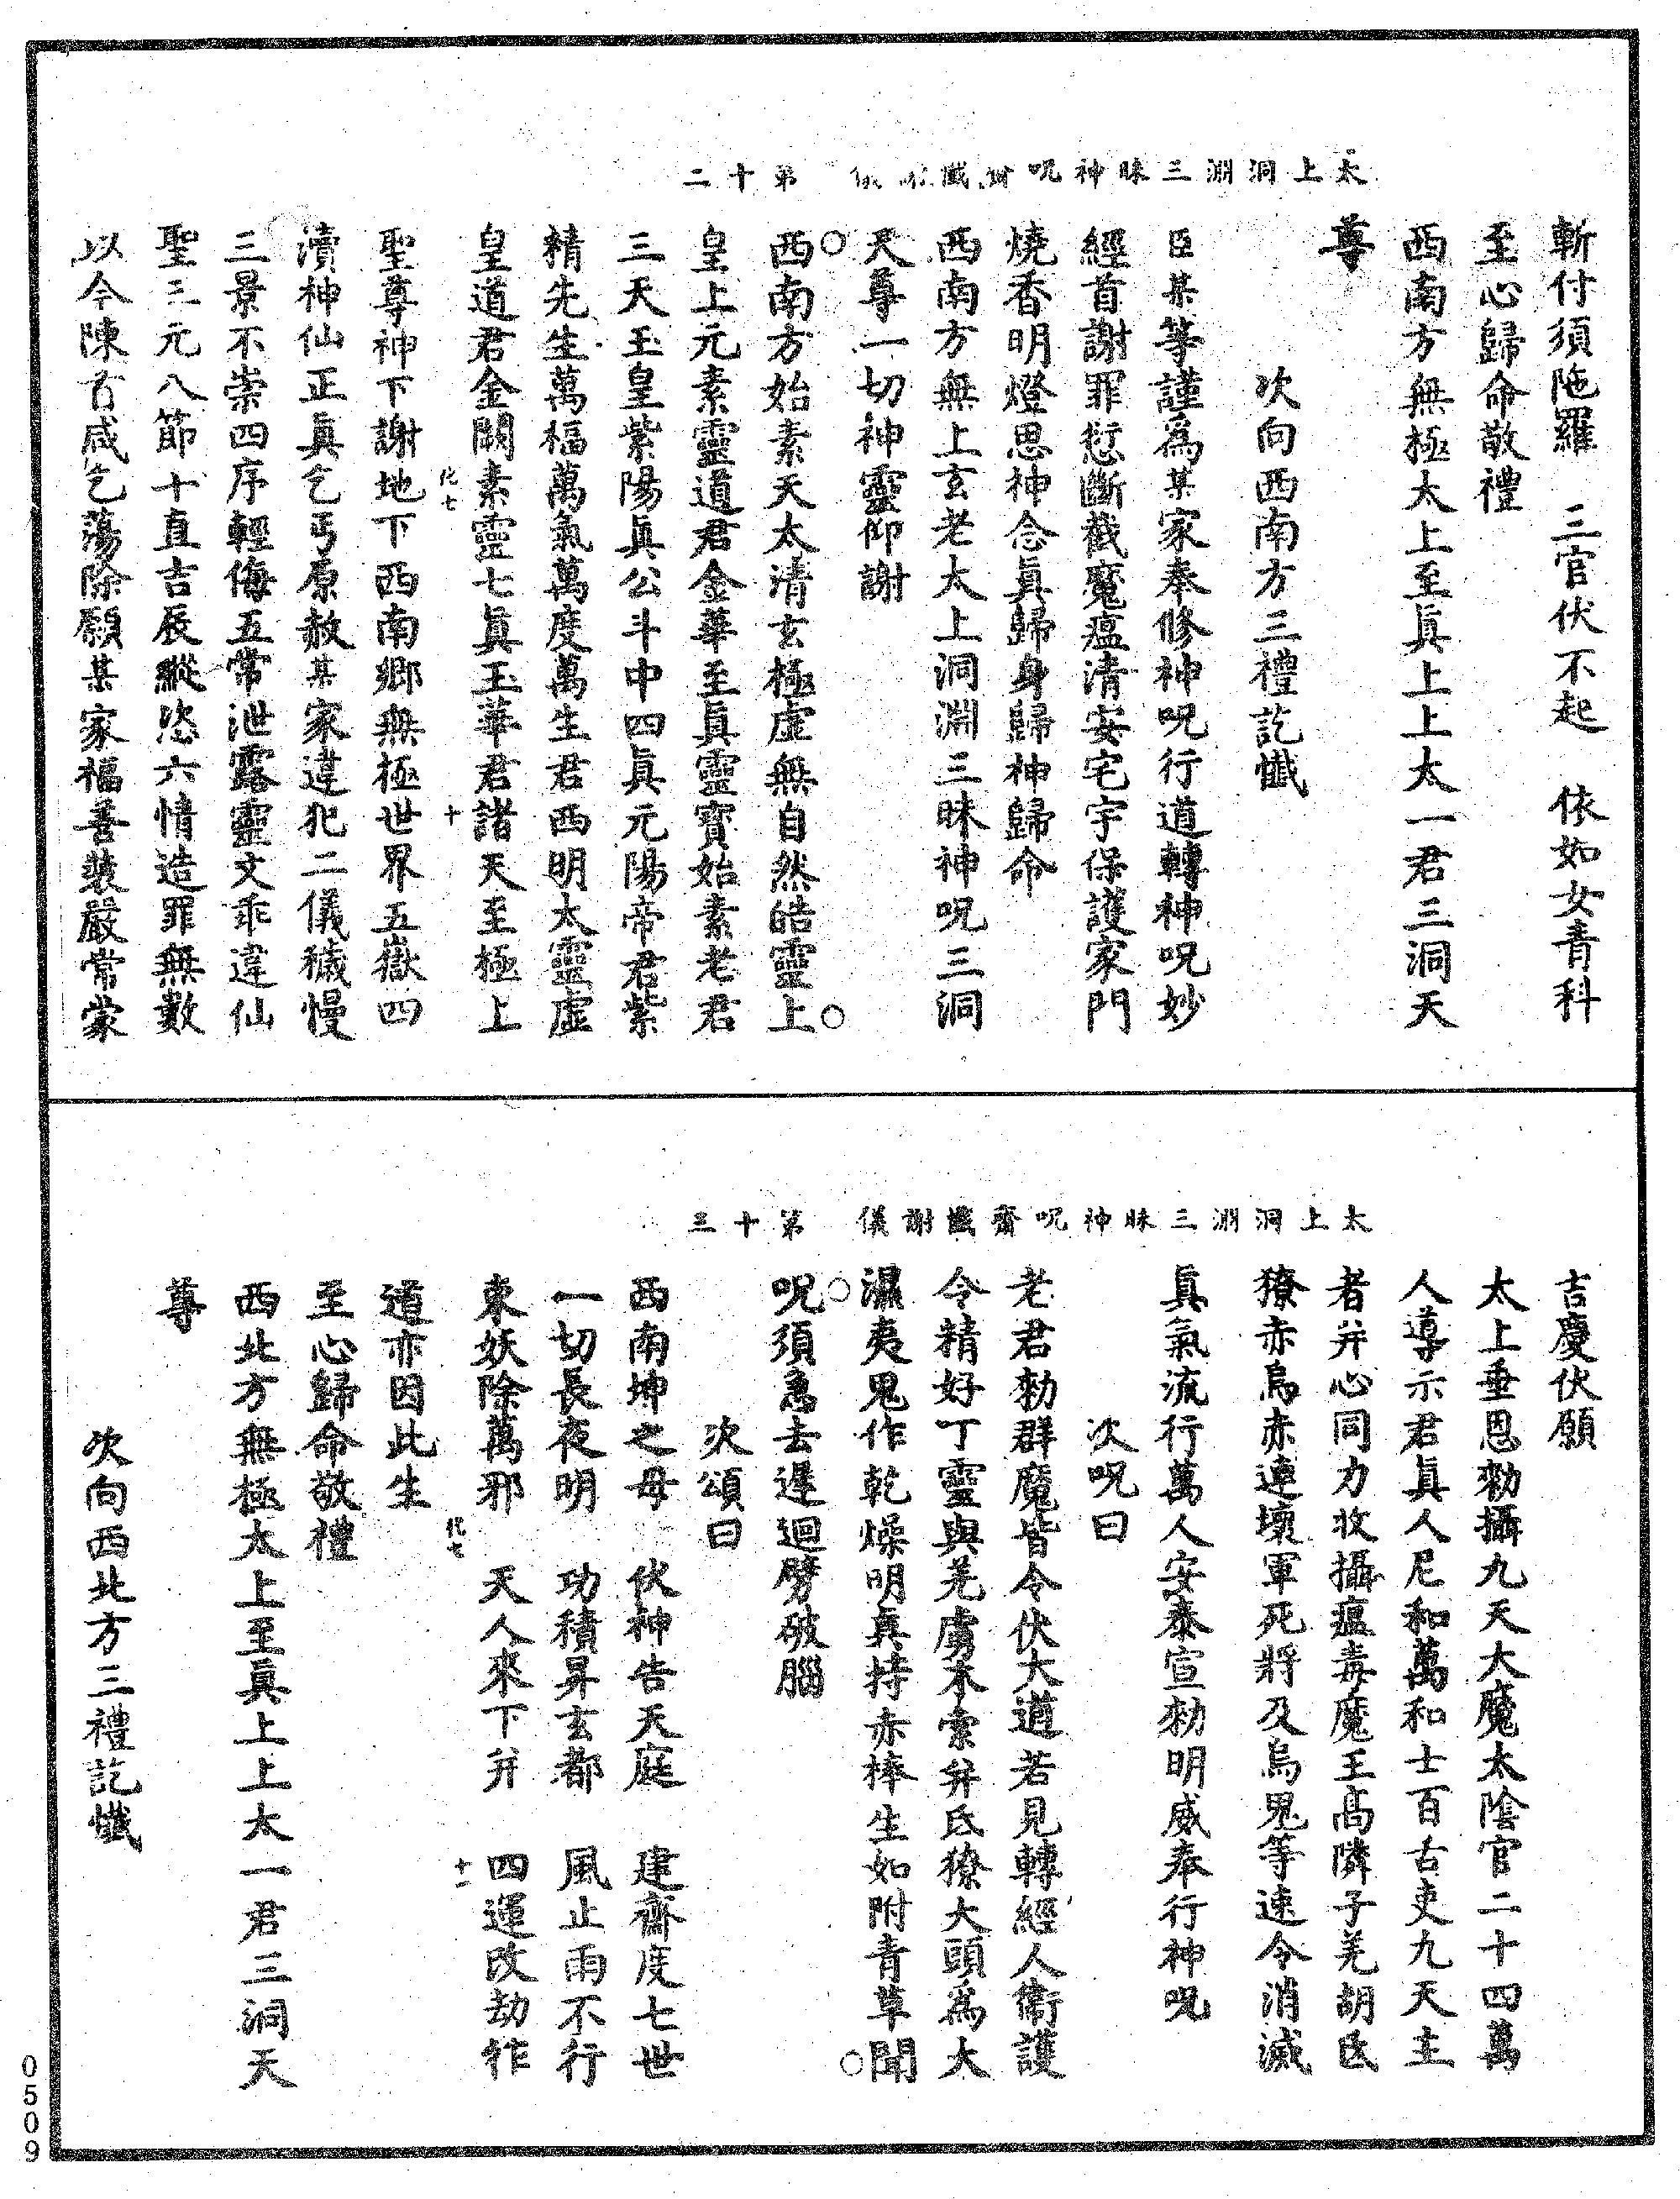 太上洞淵三昧神呪 懺 儀 第十二
斬付須陁羅 三官伏不起 依如女青科
至心歸命敬禮
西南方無極太上至眞上上太一君三洞天
尊
次向西南方三禮訖懺
臣某等謹爲某家奉修神呪行道轉神呪妙
經首謝罪愆斷截魔瘟清安宅宇保護家門
燒香明燈思神念眞歸身歸神歸命
西南方無上玄老太上洞淵三昧神呪三洞
天尊一切神靈仰謝
西南方始素天太清玄極虛無自然皓靈上
皇上元素靈道君金華至眞靈寶始素老君
三天玉皇紫陽眞公斗中四眞元陽帝君紫
精先生萬福萬氣萬度萬生君西明太靈虛
皇道君金闕素靈七眞玉華君諸天至極上
化七 十
聖尊神下謝地下西南鄉無極世界五嶽四
瀆神仙正眞乞丐原赦某家違犯二儀穢慢
三景不崇四序輕侮五常泄露靈文乖違仙
聖三元八節十直吉辰縱恣六情造罪無數
以今陳首咸乞蕩除願某家福善裝嚴常蒙
太上洞淵三昧神呪齋懺謝儀 第十三
吉慶伏願
太上垂恩勑攝九天大魔太陰官二十四萬
人導示君眞人尼和萬和士百古吏九天主
者并心同力收攝瘟毒魔王高隣子羌胡氐
獠赤烏赤連壞軍死將及烏鬼等速令消滅
眞氣流行萬人安泰宣勑明威奉行神呪
次呪曰
老君勑群魔皆令伏大道若見轉經人衛護
令精好丁靈與羌虜木索并氐獠大頭爲大
濕夷鬼作乾燥明眞持赤棒生如附青草聞
呪須急去遲迴劈破腦
次頌曰
西南坤之母 伏神告天庭 建齋度七世
一切長夜明 功積昇玄都 風止雨不行
束妖除萬邪 天人來下并 四運改劫作
化七 十一
道亦因此生
至心歸命敬禮
西北方無極太上至眞上上太一君三洞天
尊
次向西北方三禮訖懺
0509